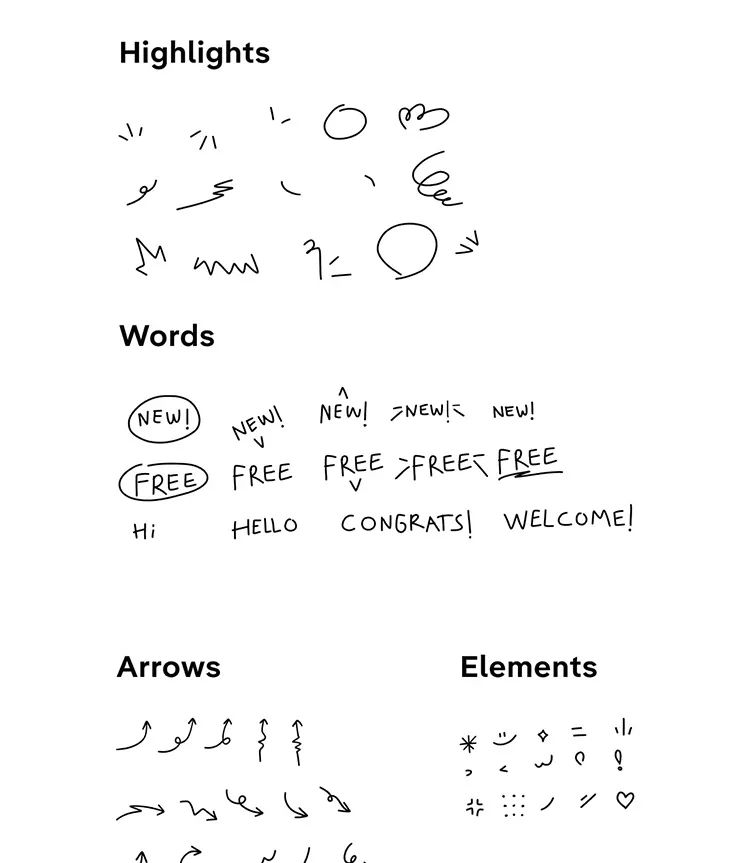 Highlights
Words
NEW! NEW! NEW! NEW! NEW!
FREE FREE FREE FREE FREE
Hi HELLO CONGRATS! WELCOME!
Arrows Elements